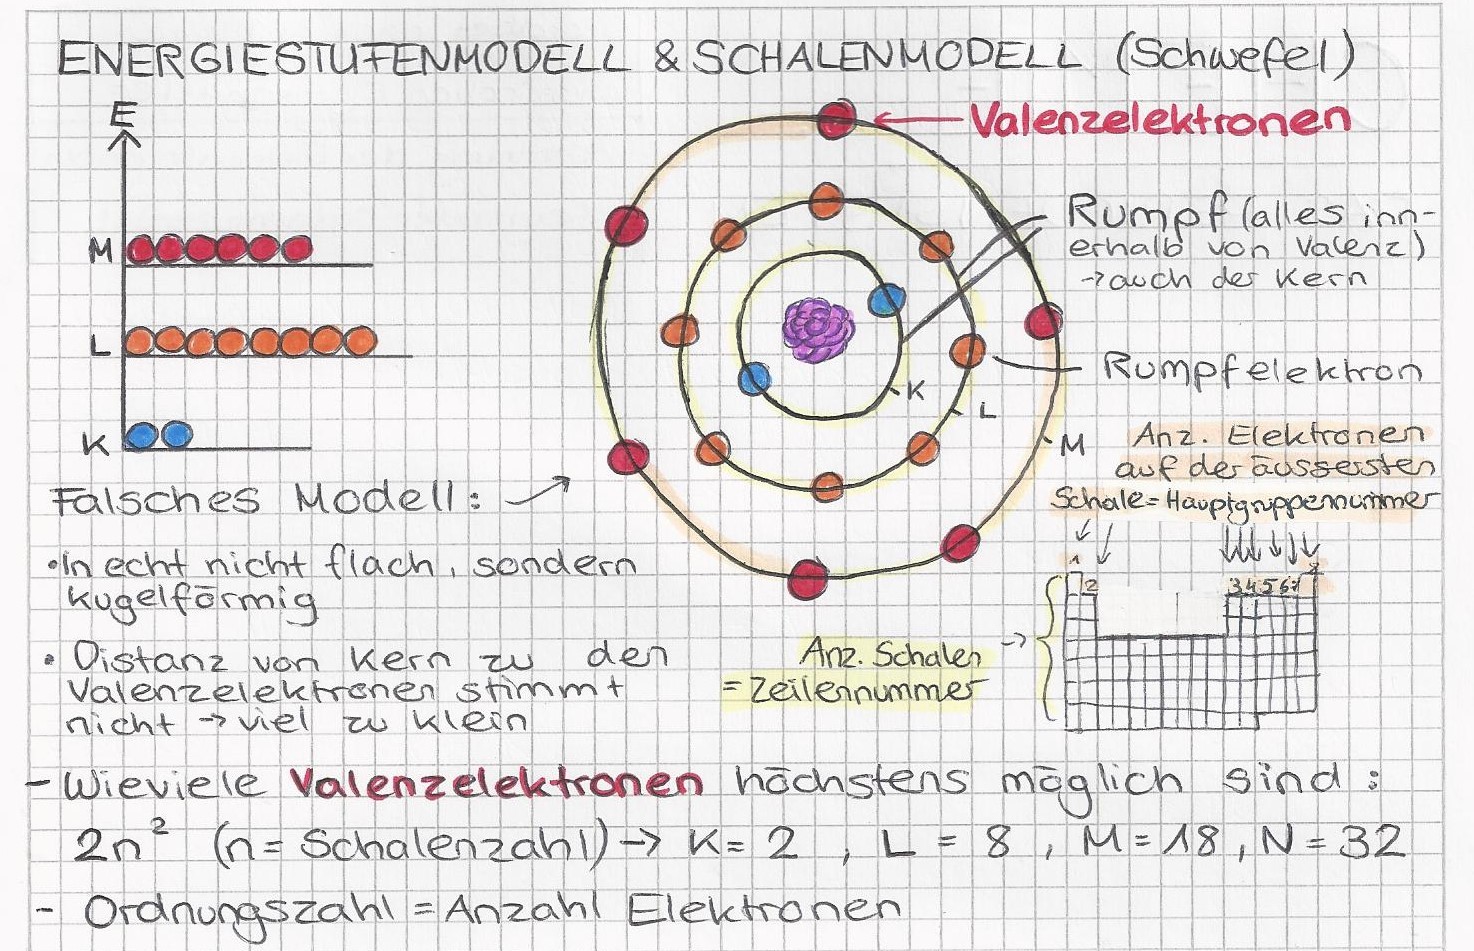 ENERGIESTUFENMODELL & SCHALENMODELL (Schwefel)
E
M
L
K
Valenzelektronen
Rumpf (alles inn-
erhalb von Valenz)
→ auch der Kern
Rumpfelektron
K
L
M
Anz. Elektronen
auf der äussersten
Schale = Hauptgruppennummer
1
2
3 4 5 6 7
Falsches Modell:
• In echt nicht flach, sondern
kugelförmig
• Distanz von Kern zu den
Valenzelektronen stimmt
nicht → viel zu klein
Anz. Schalen
= Zeilennummer
- Wieviele Valenzelektronen höchstens möglich sind:
2n² (n = Schalenzahl) → K = 2, L = 8, M = 18, N = 32
- Ordnungszahl = Anzahl Elektronen